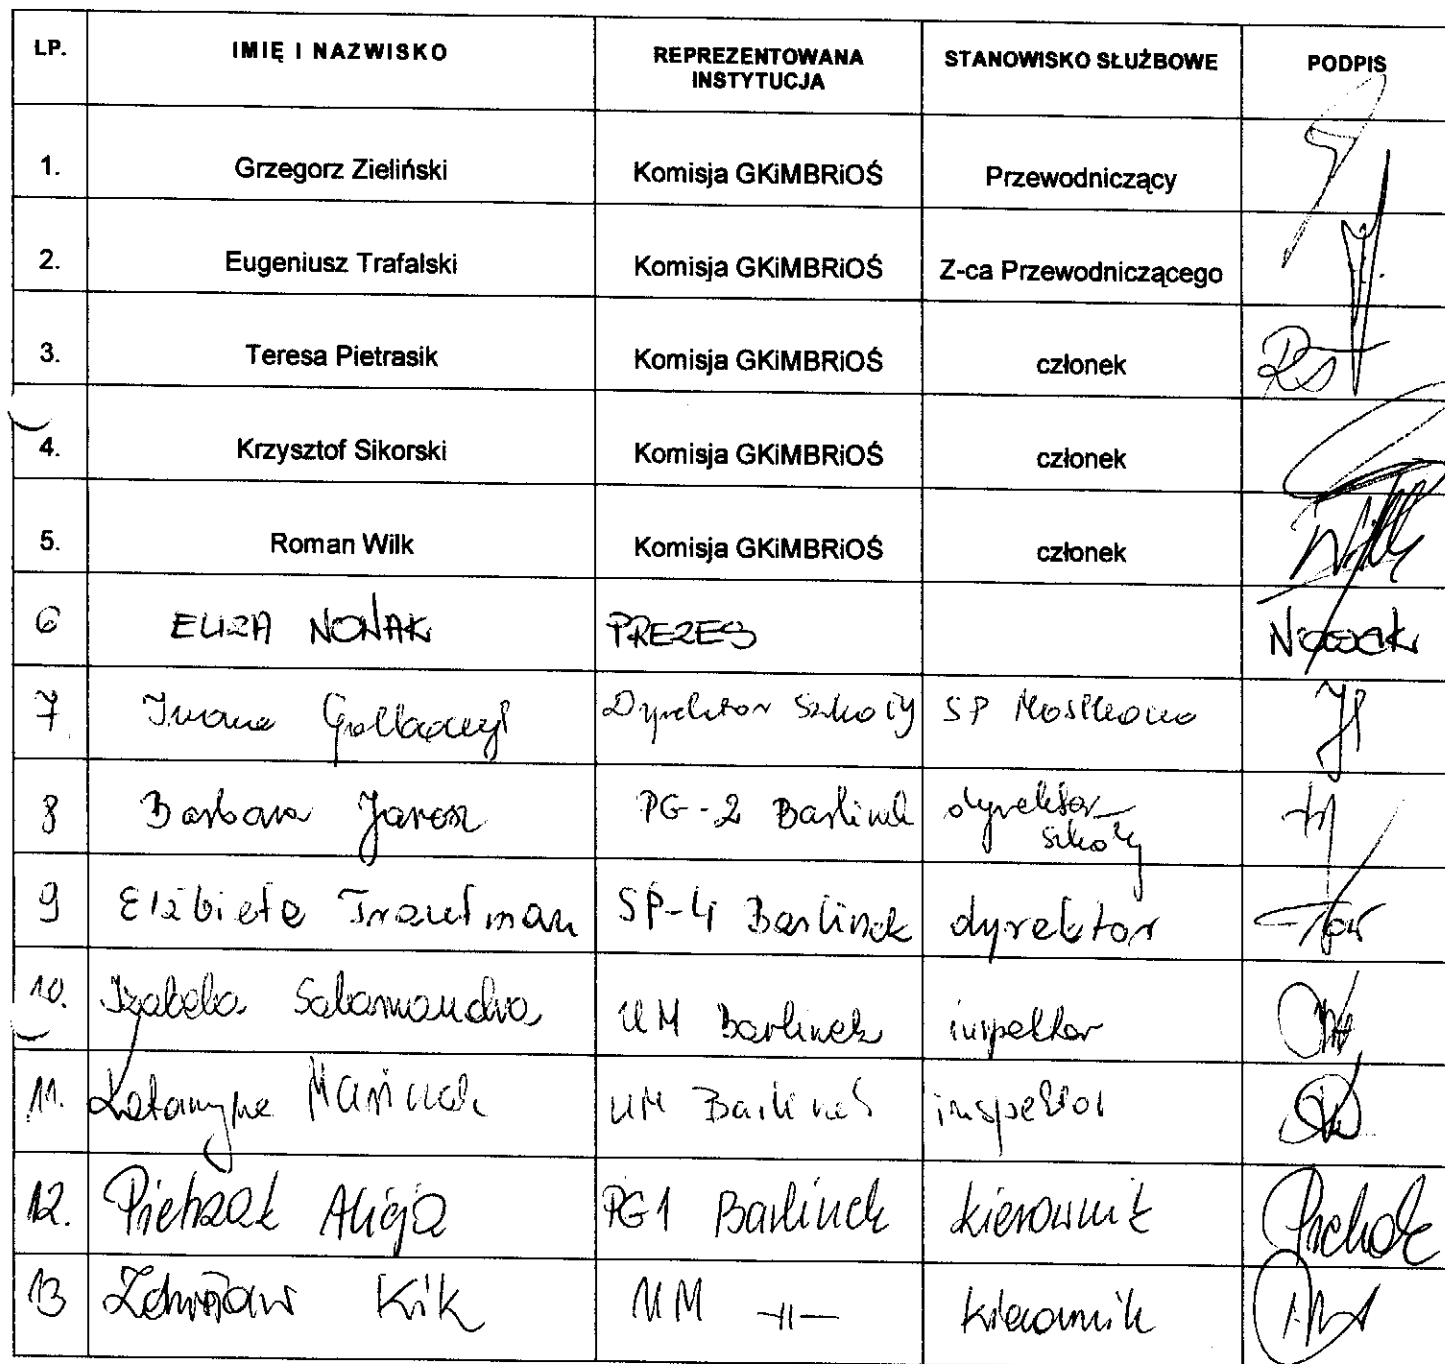 LP. IMIĘ I NAZWISKO REPREZENTOWANA INSTYTUCJA STANOWISKO SŁUŻBOWE PODPIS
1. Grzegorz Zieliński Komisja GKiMBRiOŚ Przewodniczący
2. Eugeniusz Trafalski Komisja GKiMBRiOŚ Z-ca Przewodniczącego
3. Teresa Pietrasik Komisja GKiMBRiOŚ członek
4. Krzysztof Sikorski Komisja GKiMBRiOŚ członek
5. Roman Wilk Komisja GKiMBRiOŚ członek
6 ELIZA NOWAK PREZES Nowak
7 Iwona Dyrektor Szkoły SP Mostkowo
8 Barbara Jarosz PG-2 Barlinek dyrektor szkoły
9 Elżbieta Trautman SP-4 Barlinek dyrektor
10. Izabela Salamandra UM Barlinek inspektor
11. Katarzyna UM Barlinek inspektor
12. Pietrzak Alicja PG1 Barlinek kierownik
13 Zdzisław Kik UM -||- kierownik